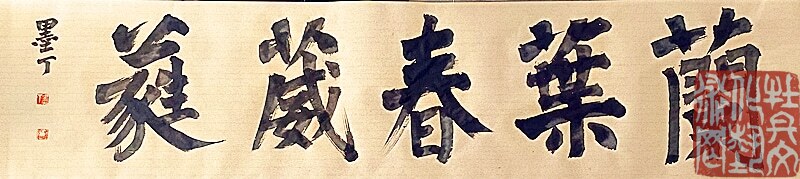 蘭葉春葳蕤
墨丁